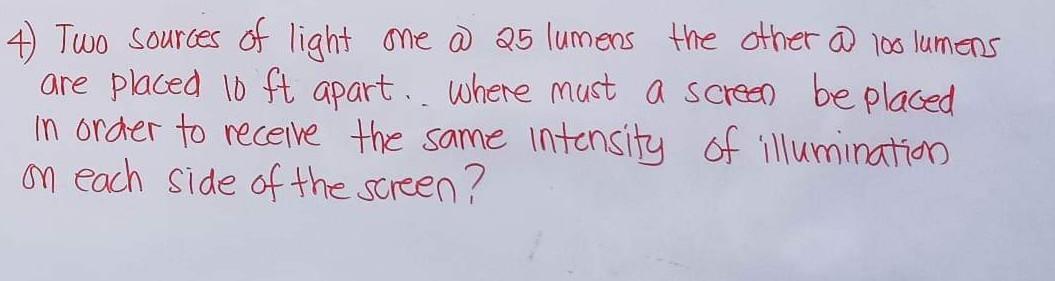 4) Two sources of light one @ 25 lumens the other @ 100 lumens
are placed 10 ft apart.. where must a screen be placed
in order to receive the same intensity of illumination
on each side of the screen?